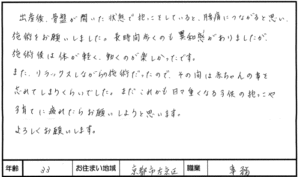 出産後、骨盤が開いた状態で抱っこをしていると、腰痛につながると思い、
施術をお願いしました。長時間歩くのも違和感がありましたが、
施術後は体が軽く、動くのが楽しかったです。
また、リラックスしながらの施術だったので、その間は赤ちゃんの事を
忘れてしまうくらいでした。まだこれからも日々重くなる子供の抱っこや
子育てに疲れたらお願いしようと思います。
よろしくお願いします。
年齢 33 お住まい地域 京都市右京区 職業 事務